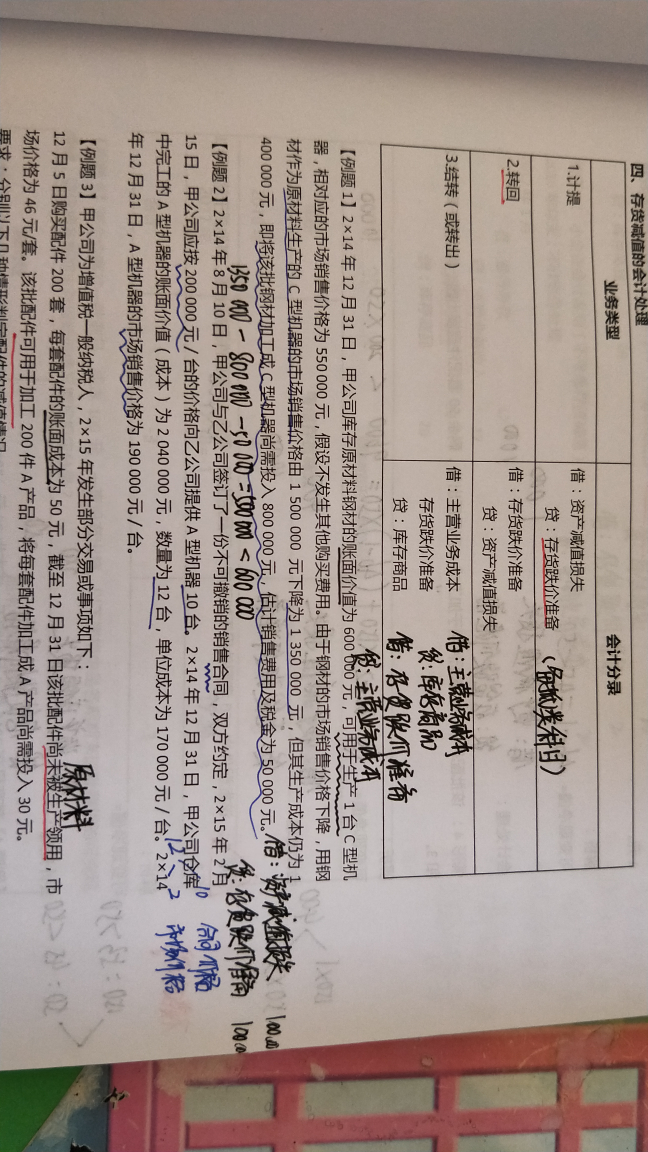 四、存货减值的会计处理
业务类型 会计分录
1.计提 借：资产减值损失
贷：存货跌价准备 (备抵类科目)
2.转回 借：存货跌价准备
贷：资产减值损失
3.结转（或转出） 借：主营业务成本 借：主营业务成本
存货跌价准备 贷：库存商品
贷：库存商品 借：存货跌价准备
贷：主营业务成本
【例题 1】2×14 年 12 月 31 日，甲公司库存原材料钢材的账面价值为 600 000 元，可用于生产 1 台 C 型机
器，相对应的市场销售价格为 550 000 元，假设不发生其他购买费用。由于钢材的市场销售价格下降，用钢
材作为原材料生产的 C 型机器的市场销售价格由 1 500 000 元下降为 1 350 000 元，但其生产成本仍为 1
400 000 元，即将该批钢材加工成 C 型机器尚需投入 800 000 元，估计销售费用及税金为 50 000 元。
借：资产减值损失
贷：存货跌价准备
1350 000 - 800 000 - 50 000 = 500 000 < 600 000
【例题 2】2×14 年 8 月 10 日，甲公司与乙公司签订了一份不可撤销的销售合同，双方约定，2×15 年 2 月
15 日，甲公司应按 200 000 元／台的价格向乙公司提供 A 型机器 10 台。2×14 年 12 月 31 日，甲公司仓库
中完工的 A 型机器的账面价值（成本）为 2 040 000 元，数量为 12 台，单位成本为 170 000 元／台。2×14
年 12 月 31 日，A 型机器的市场销售价格为 190 000 元／台。
12 10 合同价格
2 市场价格
【例题 3】甲公司为增值税一般纳税人，2×15 年发生部分交易或事项如下：
原材料
12 月 5 日购买配件 200 套，每套配件的账面成本为 50 元，截至 12 月 31 日该批配件尚未被生产领用，市
场价格为 46 元/套。该批配件可用于加工 200 件 A 产品，将每套配件加工成 A 产品尚需投入 30 元。
要求：分别以下几种情形判定配件的减值情况